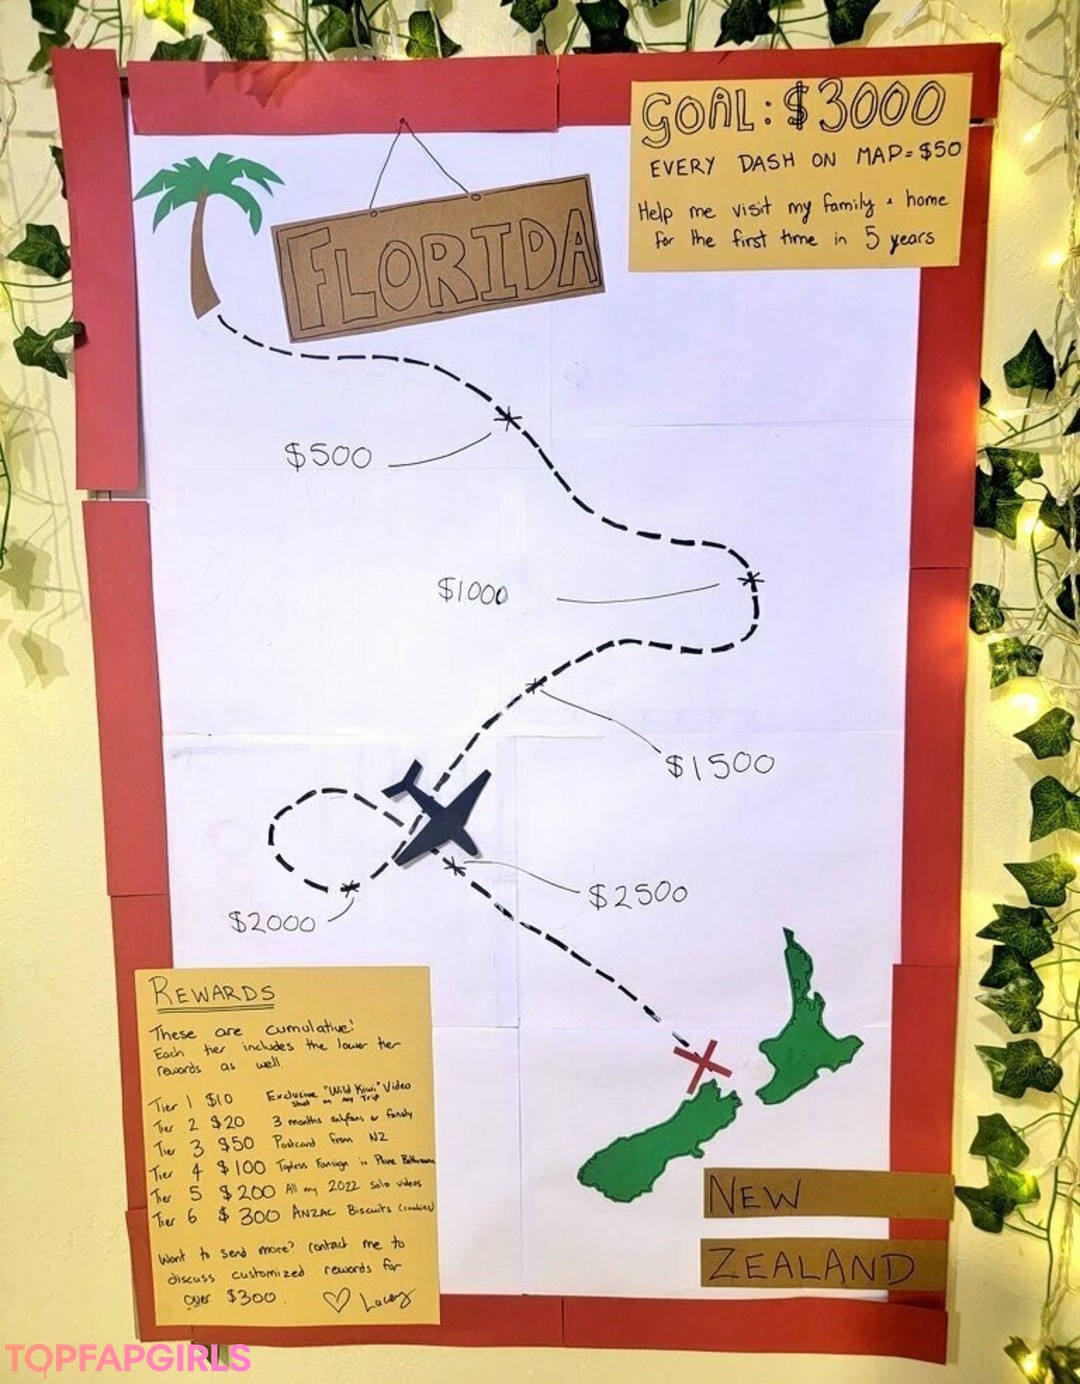 GOAL: $3000
EVERY DASH ON MAP = $50
Help me visit my family + home
for the first time in 5 years
FLORIDA
$500
$1000
$1500
$2500
$2000
REWARDS
These are cumulative!
Each tier includes the lower tier
rewards as well.
Tier 1 $10 Exclusive "Wild Kiwi" Video
shot on my Trip
Tier 2 $20 3 months onlyfans or fansly
Tier 3 $50 Postcard from NZ
Tier 4 $100 Topless Fansign in Plane Bathroom
Tier 5 $200 All my 2022 solo videos
Tier 6 $300 ANZAC Biscuits (cookies)
Want to send more? contact me to
discuss customized rewards for
over $300. ♡ Lacey
NEW
ZEALAND
TOPFAPGIRLS